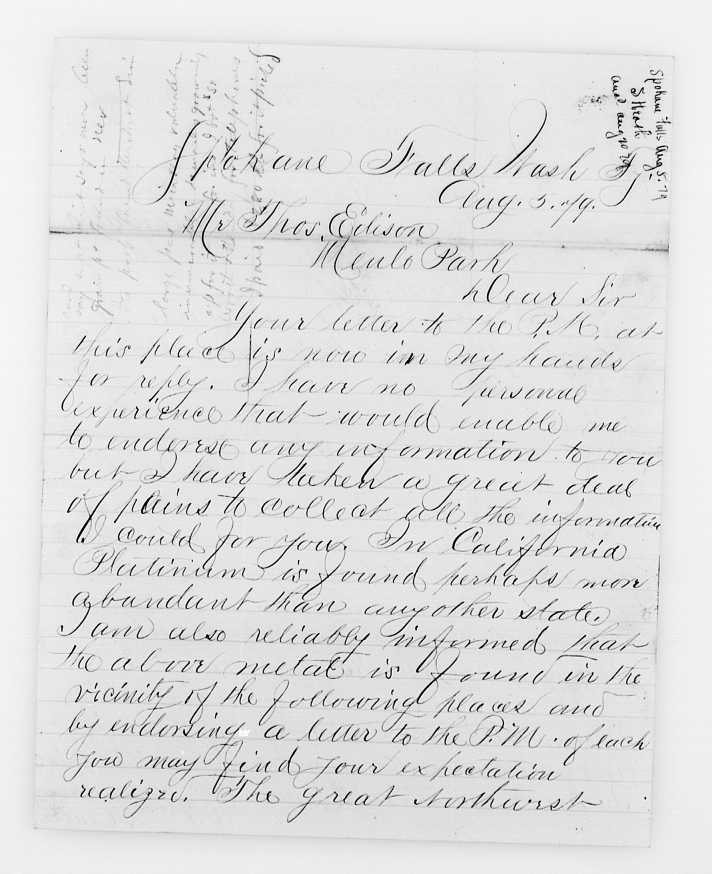 Spokane Falls Wash Ty
Aug. 5. 79.
Mr Thos. Edison
Menlo Park
Dear Sir
Your letter to the P.M. at
this place is now in my hands
for reply. I have no personal
experience that would enable me
to endorse any information to you
but I have taken a great deal
of pains to collect all the information
I could for you. In California
Platinum is found perhaps more
abundant than any other state.
I am also reliably informed that
the above metal is found in the
vicinity of the following places and
by endorsing a letter to the P.M. of each
you may find your expectation
realized. The great Northwest
Spokane Falls Aug 5. 79
ansd aug 20 79